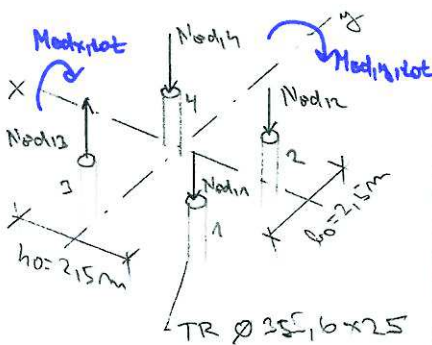 y
MEd,x,tot
NEd,4
MEd,y,tot
X
NEd,2
4
NEd,3
2
3
NEd,1
h0=2,5m
1
h0=2,5m
TR Ø 355,6×25